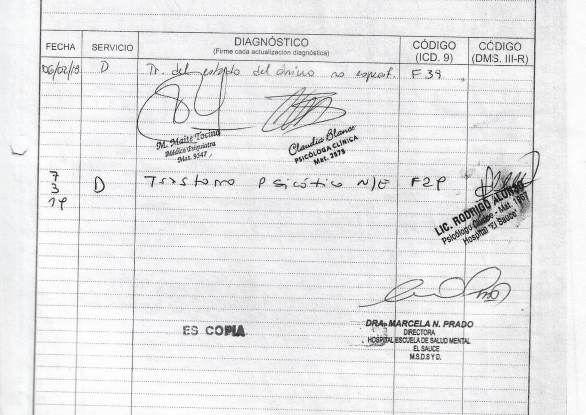 FECHA SERVICIO DIAGNÓSTICO CÓDIGO CÓDIGO
(Firme cada actualización diagnóstica) (ICD. 9) (DMS. III-R)
06/02/18 D Tr. del estado del ánimo no especif. F 39.
M. Maite Tocino
Médica Psiquiatra
Mat. 9547
Claudia Blanco
PSICÓLOGA CLÍNICA
Mat. 2575
7 D Trastorno Psicótico N/E F29
3
19
LIC. RODRIGO ALONSO
Psicólogo - Mat.
Hospital "El Sauce"
ES COPIA
DRA. MARCELA N. PRADO
DIRECTORA
HOSPITAL ESCUELA DE SALUD MENTAL
EL SAUCE
M.S.D.S Y D.